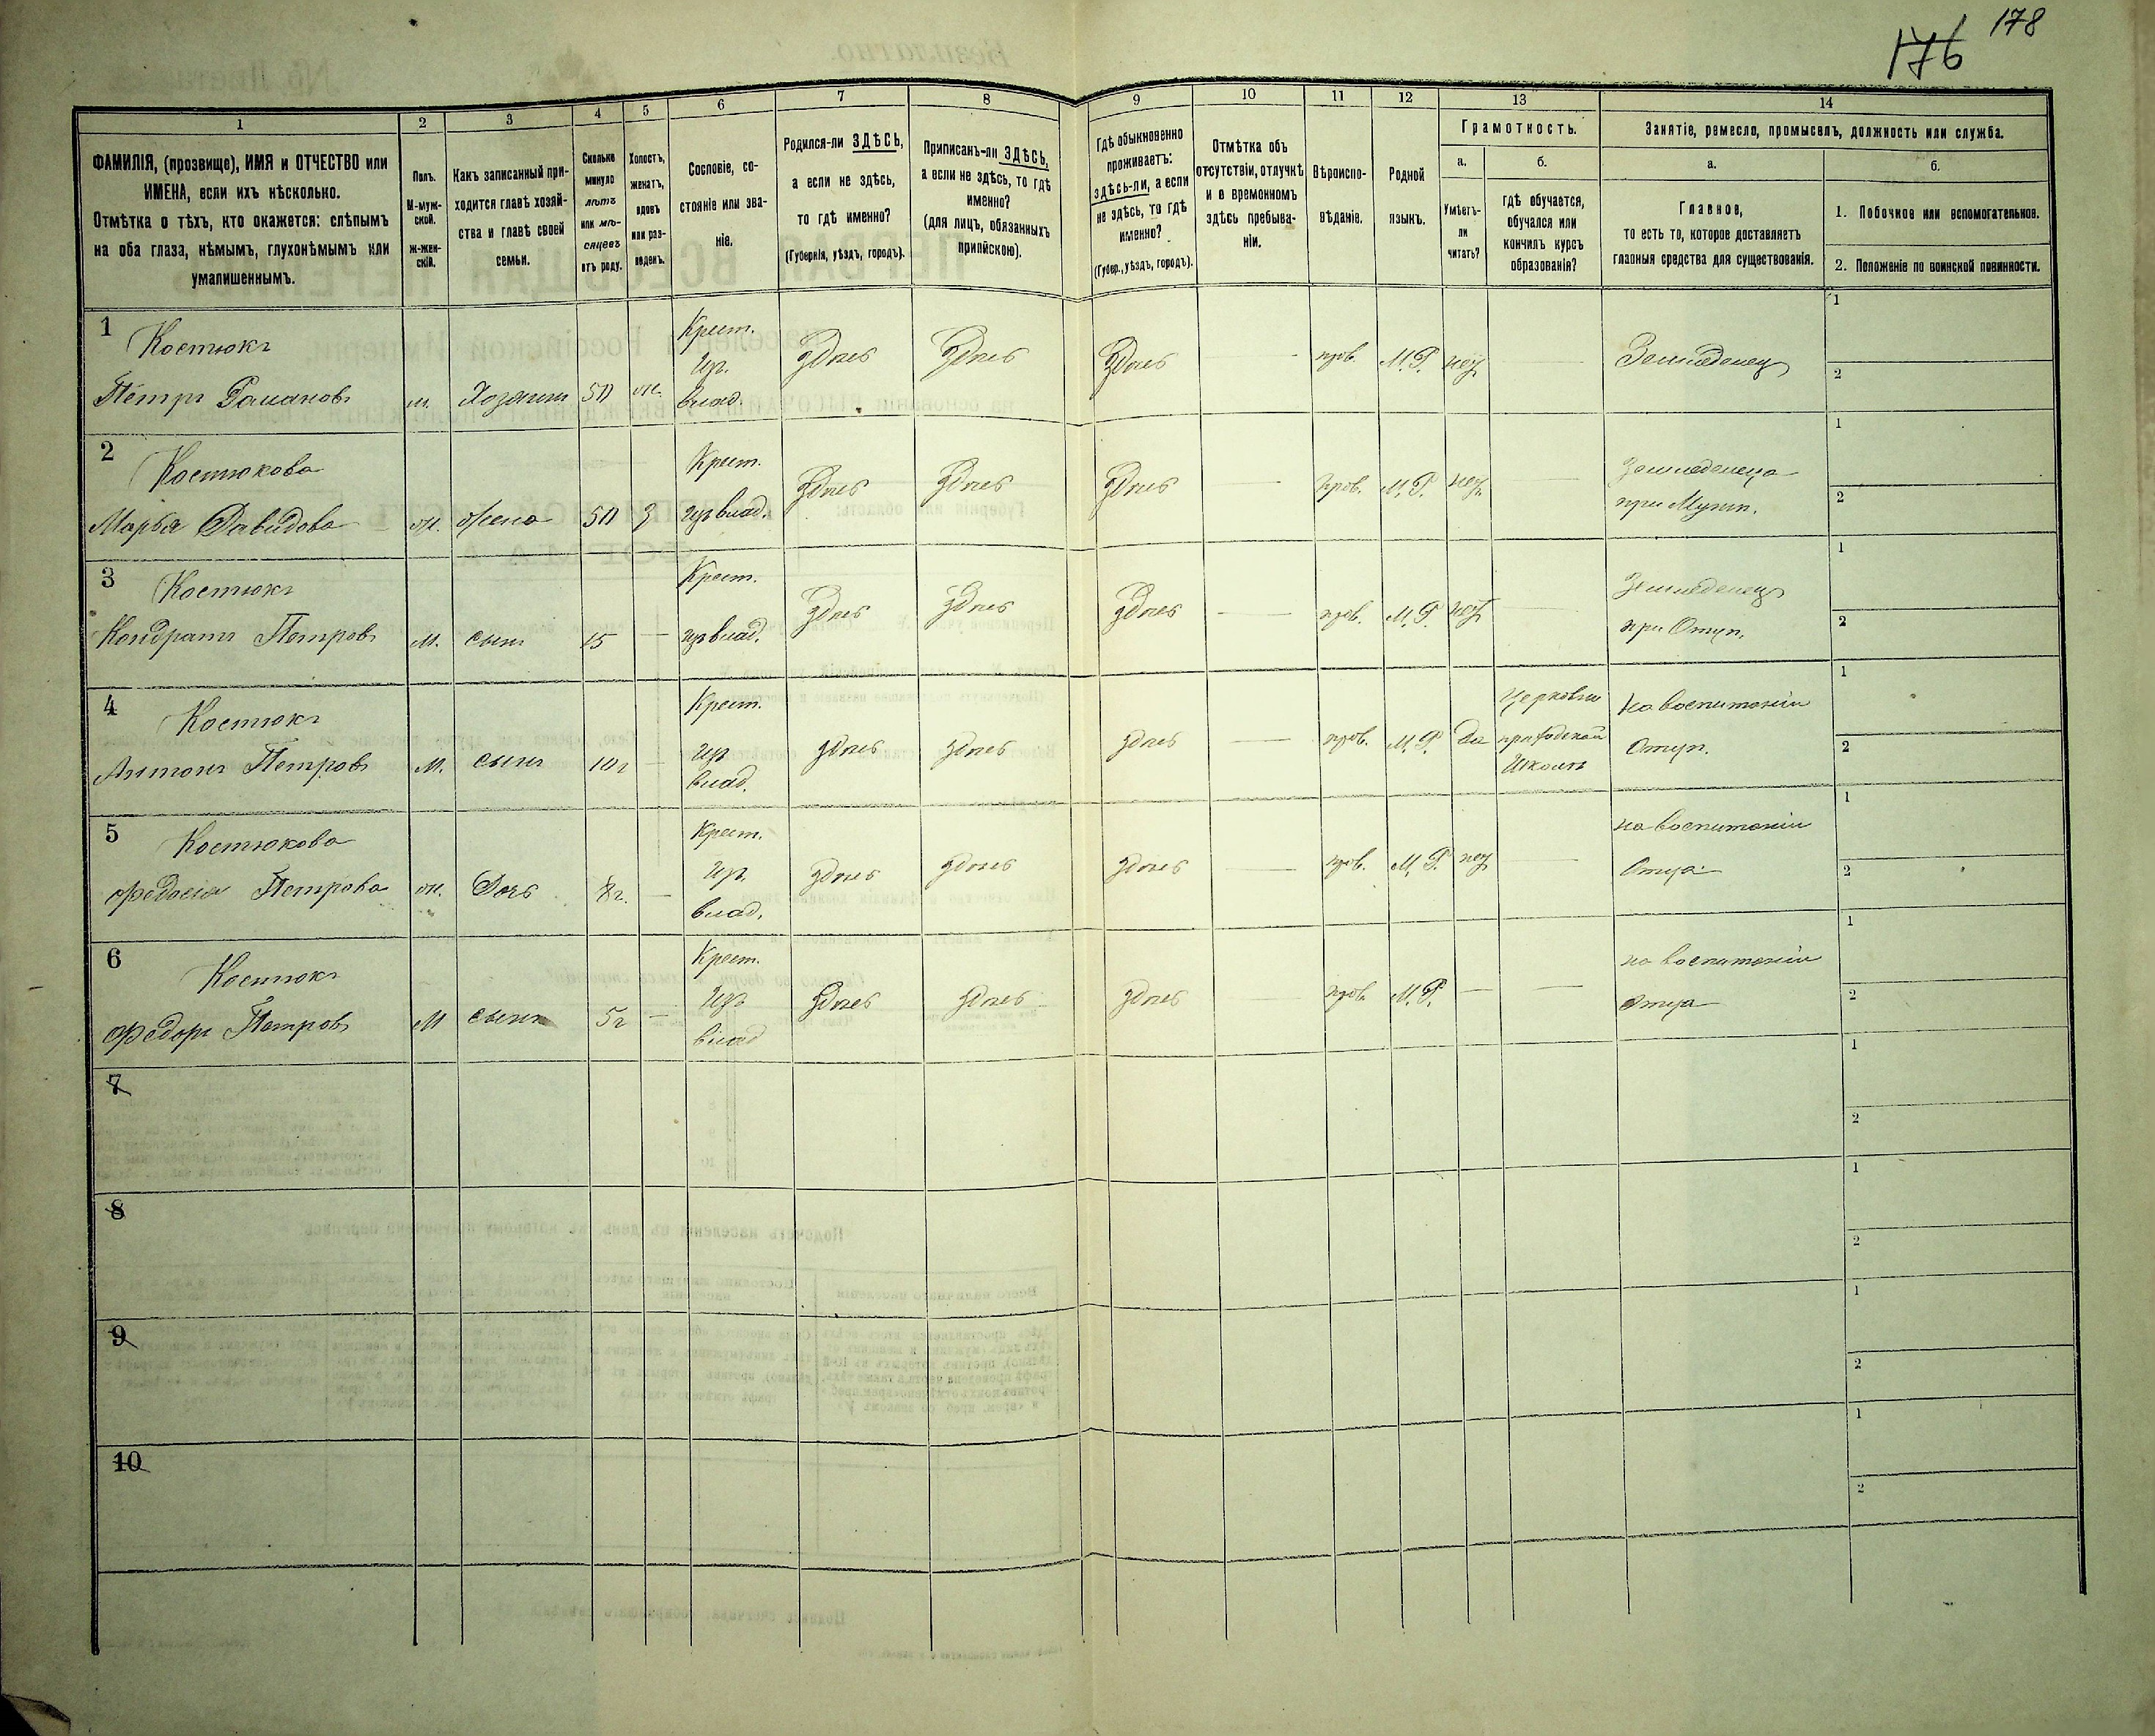 178
176
1
2
3
4
5
6
7
8
9
10
11
12
13
14
ФАМИЛІЯ, (прозвище), ИМЯ и ОТЧЕСТВО или
ИМЕНА, если ихъ нѣсколько.
Отмѣтка о тѣхъ, кто окажется: слѣпымъ
на оба глаза, нѣмымъ, глухонѣмымъ или
умалишеннымъ.
Полъ.
М-муж-
ской.
Ж-жен-
скій.
Какъ записанный при-
ходится главѣ хозяй-
ства и главѣ своей
семьи.
Сколько
минуло
лѣтъ
или мѣ-
сяцевъ
отъ роду.
Холостъ,
женатъ,
вдовъ
или раз-
веденъ.
Сословіе, со-
стояніе или зва-
ніе.
Родился-ли ЗДѢСЬ,
а если не здѣсь,
то гдѣ именно?
(Губернія, уѣздъ, городъ).
Приписанъ-ли ЗДѢСЬ,
а если не здѣсь, то гдѣ
именно?
(для лицъ, обязанныхъ
припискою).
Гдѣ обыкновенно
проживаетъ:
здѣсь-ли, а если
не здѣсь, то гдѣ
именно?
(Губер., уѣздъ, городъ).
Отмѣтка объ
отсутствіи, отлучкѣ
и о временномъ
здѣсь пребыва-
ніи.
Вѣроиспо-
вѣданіе.
Родной
языкъ.
Грамотность.
а.
Умѣетъ-
ли
читать?
б.
гдѣ обучается,
обучался или
кончилъ курсъ
образованія?
Занятіе, ремесло, промыселъ, должность или служба.
а.
Главное,
то есть то, которое доставляетъ
главныя средства для существованія.
б.
1. Побочное или вспомогательное.
2. Положеніе по воинской повинности.
1
Костюкъ
Петръ Романовъ
м.
Хозяинъ
50
ж.
Крест.
Из.
влад.
Здѣсь
Здѣсь
Здѣсь
—
прав.
М.Р.
нѣтъ
—
Земледелецъ
1
2
2
Костюкова
Марья Давидова
ж.
Жена
50
З
Крест.
изъ влад.
Здѣсь
Здѣсь
Здѣсь
—
прав.
М.Р.
нѣтъ
—
Земледелеца
при Мужѣ.
1
2
3
Костюкъ
Кондратъ Петровъ
М.
сынъ
15
—
Крест.
изъ влад.
Здѣсь
Здѣсь
Здѣсь
—
прав.
М.Р.
нѣтъ
Земледелецъ
при Отцѣ.
1
2
4
Костюкъ
Антонъ Петровъ
М.
сынъ
10 г
—
Крест.
изъ
влад.
здѣсь
здѣсь
здѣсь
—
прав.
М.Р.
Да
приходской
Школѣ
На воспитаніи
1
2
5
Костюкова
Федосия Петрова
ж.
Дочь
8 г.
—
Крест.
Из.
влад.
здѣсь
здѣсь
здѣсь
—
прав.
М.Р.
нѣтъ
—
на воспитаніи
Отца
1
2
6
Костюкъ
Федоръ Петровъ
М
сынъ
5 г
—
Крест.
Изъ
влад
Здѣсь
здѣсь
здѣсь
прав.
М.Р.
—
—
на воспитаніи
отца
1
2
7
1
2
8
1
2
9
1
2
10
1
2